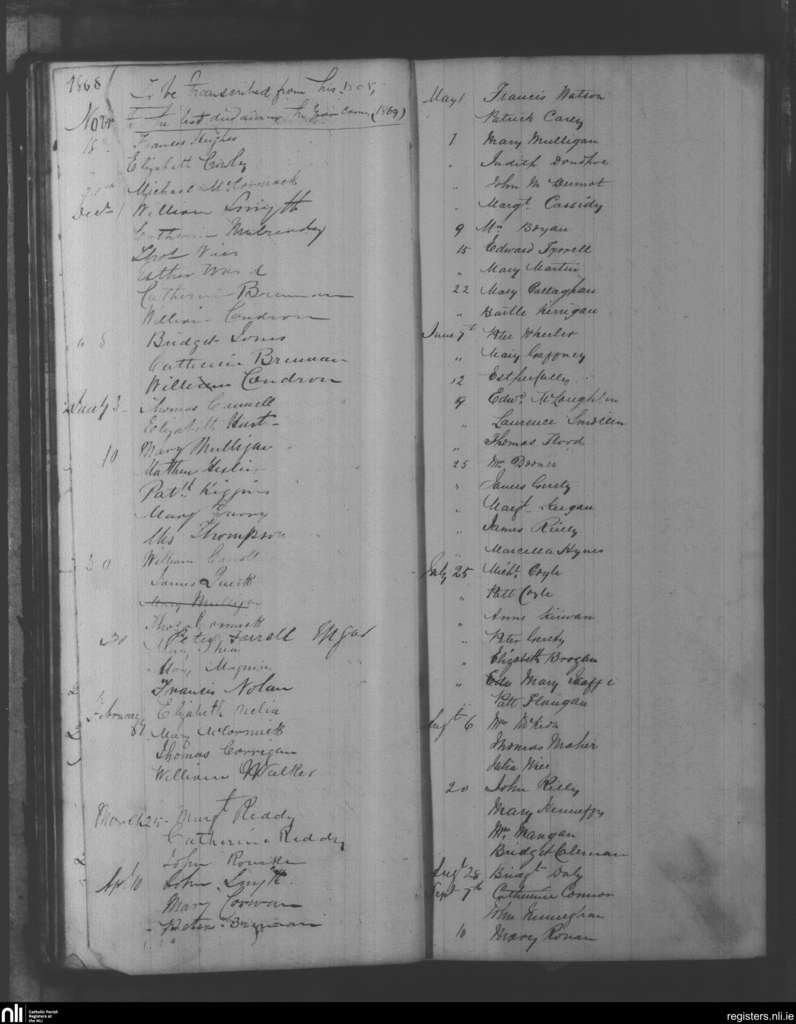 1868
To be transcribed from this Book,
Novr
18 Frances Hughes
Elizabeth
Michael McCormack
Decr 1 William Smyth
Catherine
Thos
Esther Ward
Catherine Brennan
William Condron
" 8 Bridget Lyons
Catherine Brennan
William Condron
Jany 3 Thomas
Elizabeth Hurt
10 Mary Mulligan
Matthew
Patk Higgins
Mary
Mrs Thompson
30 William Carroll
James Quirk
Mary Mulligan
Thos Cormick
30 Peter Farrell
Mary
Mary
Francis Nolan
February Elizabeth
Mary McCormick
Thomas Corrigan
William Walker
March 25 Margt Reddy
Catherine Reddy
John Rourke
Apl 10 John Smyth
Mary Corwan
Peter Brennan
May 1 Francis Watson
Patrick Carey
1 Mary Mulligan
" Judith Donohoe
" John McDermot
" Margt Cassidy
9 Mrs Bryan
15 Edward Tyrrell
" Mary Martin
22 Mary Callaghan
" Kerrigan
June 7th Peter Wheeler
" Mary Gaffney
12 Esther
9 Edwd McLoughlin
" Laurence
" Thomas Flood
25 Mr
" James Geraty
" Margt Keegan
" James Reilly
Marcella Hynes
July 25 Michl Coyle
" Patt Coyle
" Anne Kirwan
" Peter Geraty
" Elizabeth Brogan
" Mary
Patt Flanigan
Augt 6 Mrs
Thomas Maher
20 John Reilly
Mary
Mrs Mangan
Bridget Coleman
Augt 28 Bridgt Daly
Sept 7th Catherine Connor
John
10 Mary Ronan
nli
Catholic Parish
Registers at
the NLI
registers.nli.ie